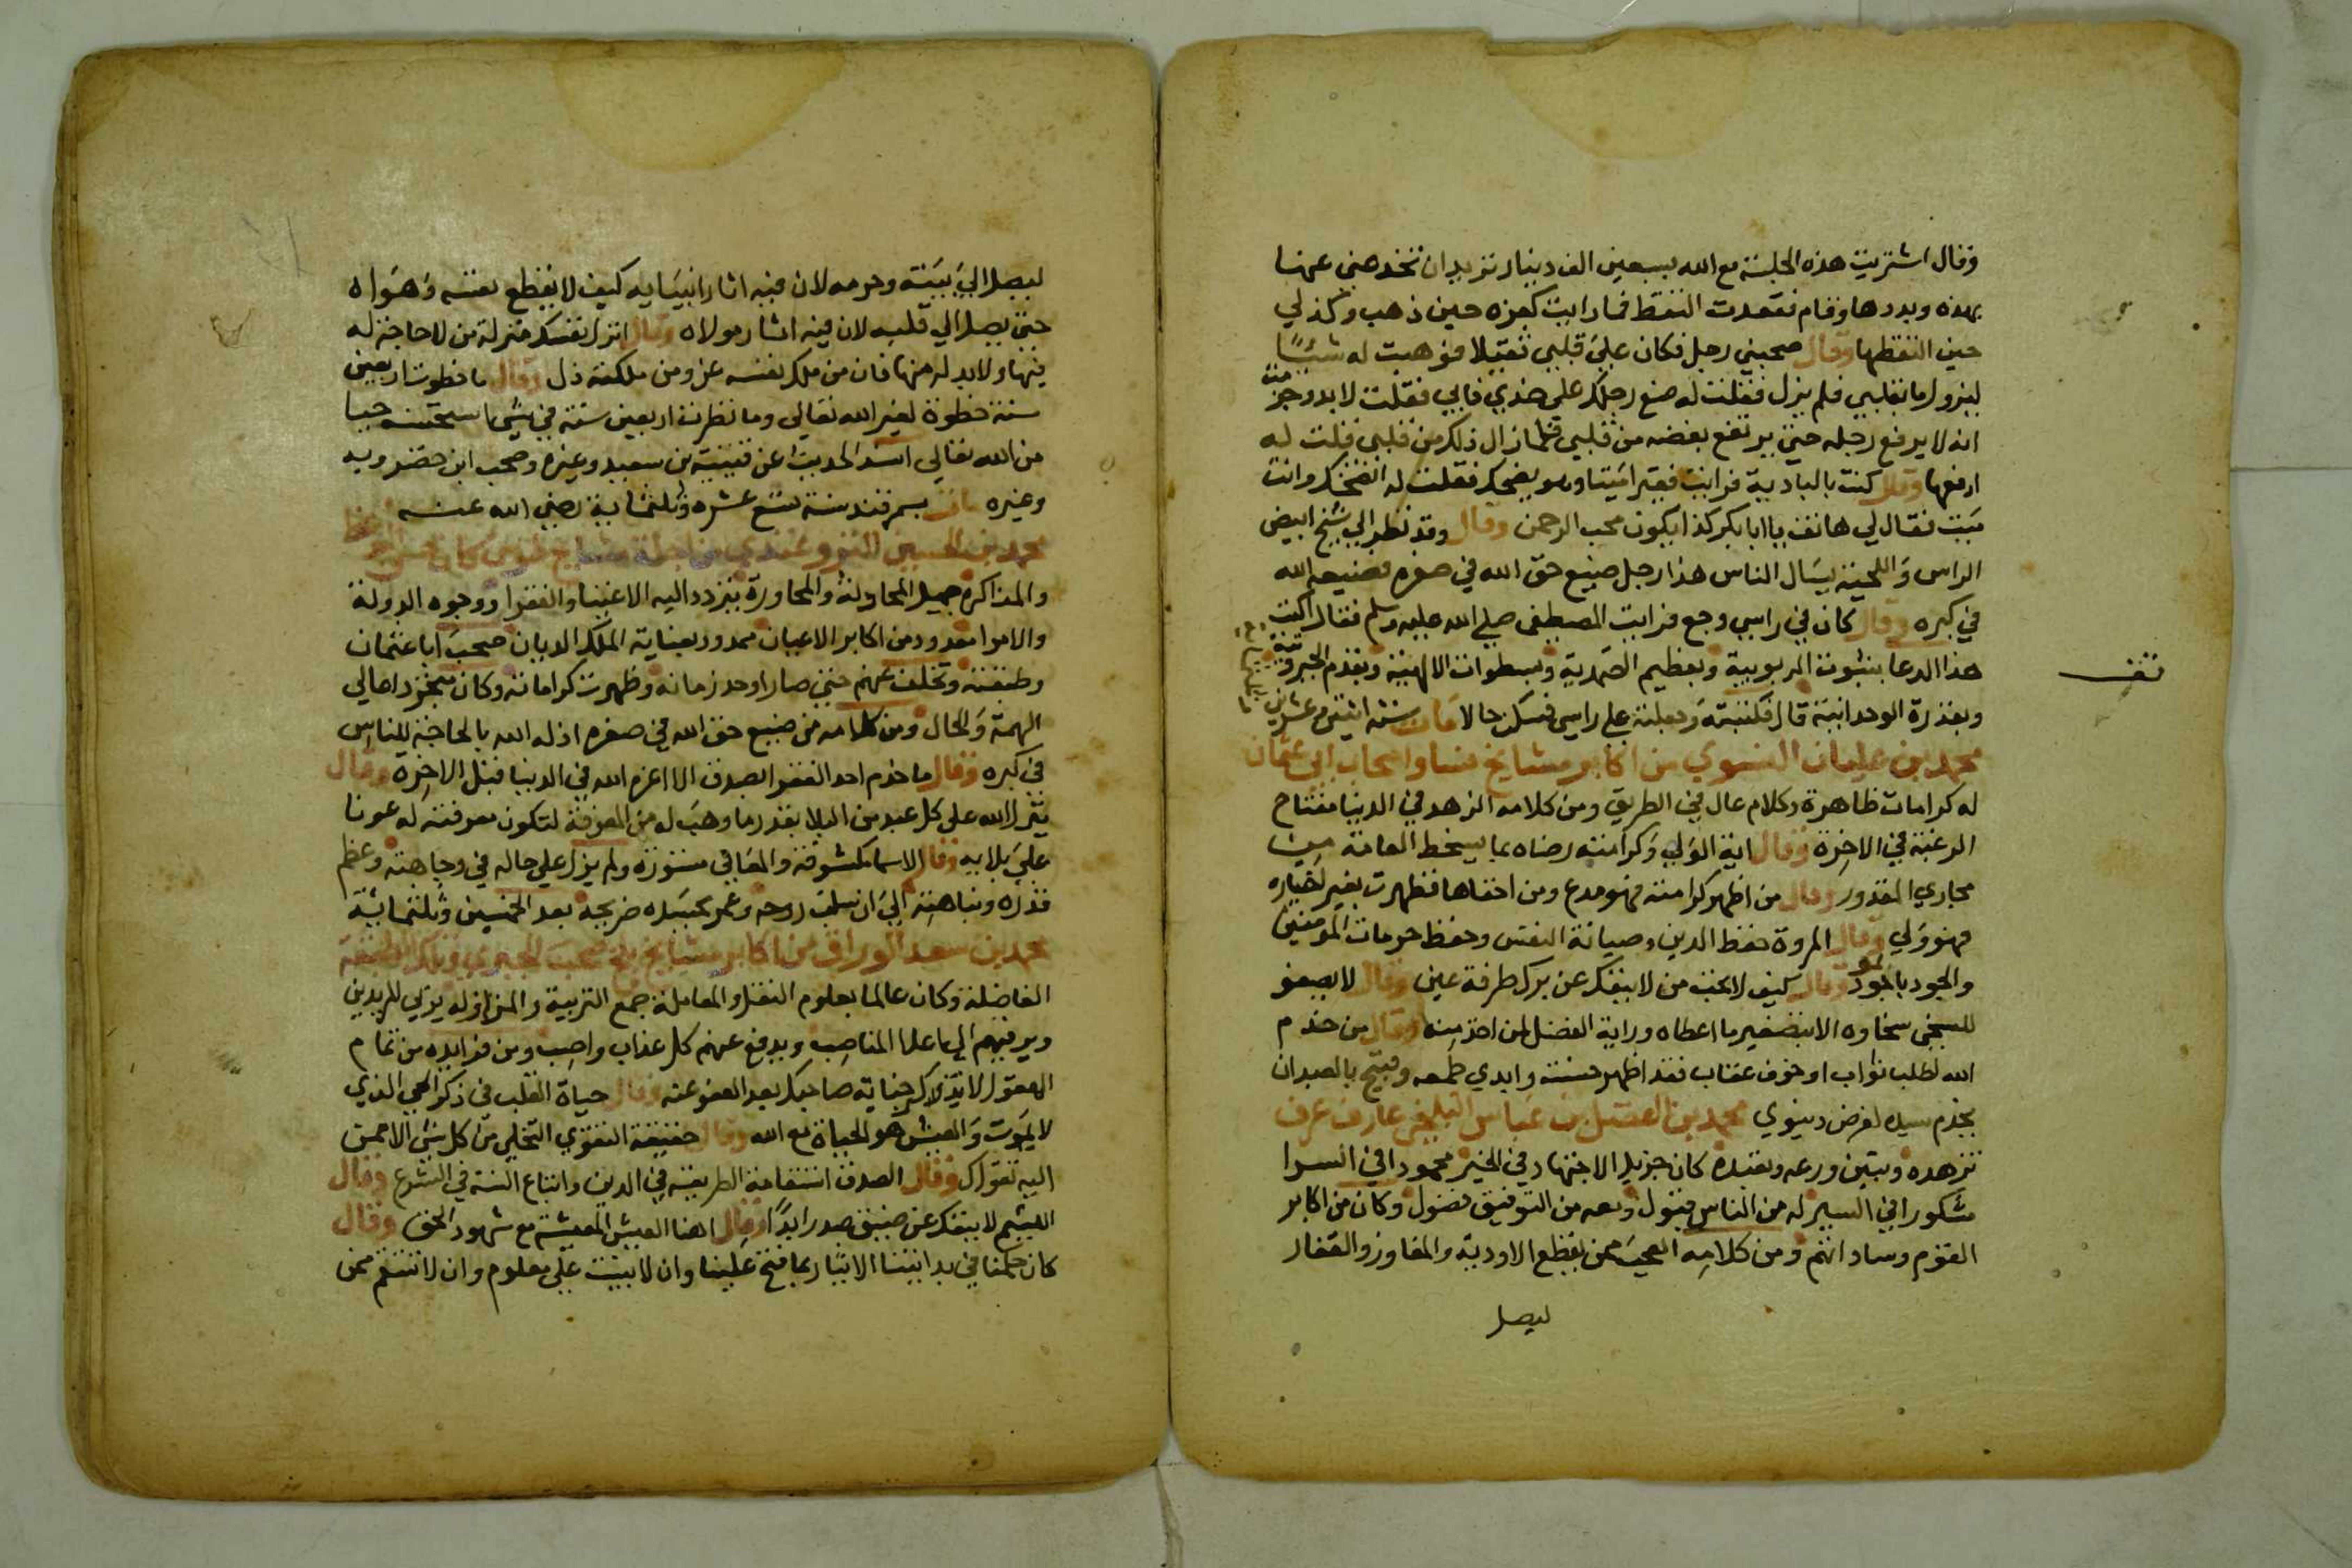 وقال اشتريت هذه الجلسة مع الله بسبعين الف دينار تريد ان تخدعني عنها
بهذه وبددها وقام فقعدت التقط فما رايت كعزه حين ذهب وكذلي
حين التقطها وقال صحبني رجل فكان على قلبي ثقيلا فوهبت له شيئا
ليزول ما بقلبي فلم يزل فقلت له ضع رجلك على خدي فابى فقلت لابد وجزمت
انه لا يرفع رجله حتى يرتفع بغضه من قلبي فلما زال ذلك من قلبي قلت له
ارفعها وقال كنت بالبادية فرايت فقيرا ميتا وهو يضحك فقلت له اتضحك وانت
ميت فقال لي هاتف يا ابا بكر كذا يكون محب الرحمن وقال وقد نظر الى شيخ ابيض
الراس واللحية يسال الناس هذا رجل ضيع حق الله في صغره فضيعه الله
في كبره وقال كان في راسي وجع فرايت المصطفى صلى الله عليه وسلم فقال اكتب
هذا الدعا بثبوت الربوبية وبعظيم الصمدية وبسطوات الالهية وبقدم الجبروتية
وبقدرة الوحدانية قال فكتبته وجعلته على راسي فسكن حالا مات سنة اثنين وعشرين
محمد بن عليان النسوي من اكابر مشايخ نسا واصحاب ابي عثمان
له كرامات ظاهرة وكلام عال في الطريق ومن كلامه الزهد في الدنيا مفتاح
الرغبة في الاخرة وقال اية الولي وكرامته رضاه بما يسخط العامة من
مجاري المقدور وقال من اظهر كرامته فهو مدع ومن اخفاها فظهرت بغير اختياره
فهو ولي وقال المروة حفظ الدين وصيانة النفس وحفظ حرمات المومنين
والجود بالموجود وقال كيف لا تحب من لا ينفك عن برك طرفة عين وقال لا يصفو
للسخي سخاوه الا بتصغير ما اعطاه وراية الفضل لمن اخذ منه وقال من خدم
الله لطلب ثواب او خوف عقاب فقد اظهر خسته وابدي طمعه وقبيح بالعبد ان
يخدم سيده لغرض دنيوي محمد بن الفضل بن عباس البلخي عارف عرف
تزهده وتبين ورعه وتعبده كان جزيل الاجتهاد في الخير محمودا في السرا
مشكورا في السير له من الناس قبول ومعه من التوفيق فضول وكان من اكابر
القوم وساداتهم ومن كلامه العجب ممن يقطع الاودية والمفاوز والقفار
ليصل
تقف
ليصل الى بيته وحرمه لان فيه اثار انبيايه كيف لا يقطع نفسه وهواه
حتى يصل الى قلبه لان فيه اثار مولاه وقال انزل نفسك منزلة من لا حاجة له
فيها ولا بد له منها فان من ملك نفسه عز ومن ملكته ذل وقال ما خطوت اربعين
سنة خطوة لغير الله تعالى وما نظرت اربعين سنة في شي استحسنته حيا
من الله تعالى اسند الحديث عن قتيبة بن سعيد وغيره وصحب ابن خضرويه
وغيره مات بسمرقند سنة تسع عشره وثلثماية رضي الله عنه
محمد بن الحسين التروغندي من اجلة مشايخ طوس كان حسن الوعظ
والمذاكرة جميل المجادلة والمحاورة يتردد اليه الاغنيا والفقرا ووجوه الدولة
والامرا معدود من اكابر الاعيان ممدود بعناية الملك الديان صحب ابا عثمان
وطبقته وتخلف عنهم حتى صار اوحد زمانه وظهرت كراماته وكان متجردا عالي
الهمة والحال ومن كلامه من ضيع حق الله في صغره اذله الله بالحاجة للناس
في كبره وقال ما خدم احد الفقرا بصدق الا اعزه الله في الدنيا قبل الاخرة وقال
ينزل الله على كل عبد من البلا بقدر ما وهب له من المعرفة لتكون معرفته له عونا
على بلايه وقال الاسما مكشوفة والمعاني مستورة ولم يزل على حاله في وجاهته وعظم
قدره ونباهته الى ان سلبت روحه وعمر بجسده ضريحه بعد الخمسين وثلثماية
محمد بن سعد الوراق من اكابر مشايخ بلخ صحب الحيري وتلك الطبقة
الفاضلة وكان عالما بعلوم النقل والمعاملة جمع التربية والمنازله يربي المريدين
ويرقيهم الى اعلا المناصب ويدفع عنهم كل عذاب واصب ومن فوايده من تمام
العقول لا تذكر جناية صاحبك بعد العفو عنه وقال حياة القلب في ذكر الحي الذي
لا يموت والعيش هو الحياة مع الله وقال حقيقة التقوي التخلي من كل شي الا ممن
اليه تقواك وقال الصدق استقامة الطريقة في الدين واتباع السنة في الشرع وقال
اليتيم لا ينفك عن ضيق صدر ابدا وقال اهنا العيش المعيشة مع شهود الحق وقال
كان حكمنا في بدايتنا الايثار بما فتح علينا وان لا نبيت على معلوم وان لا ننتقم ممن